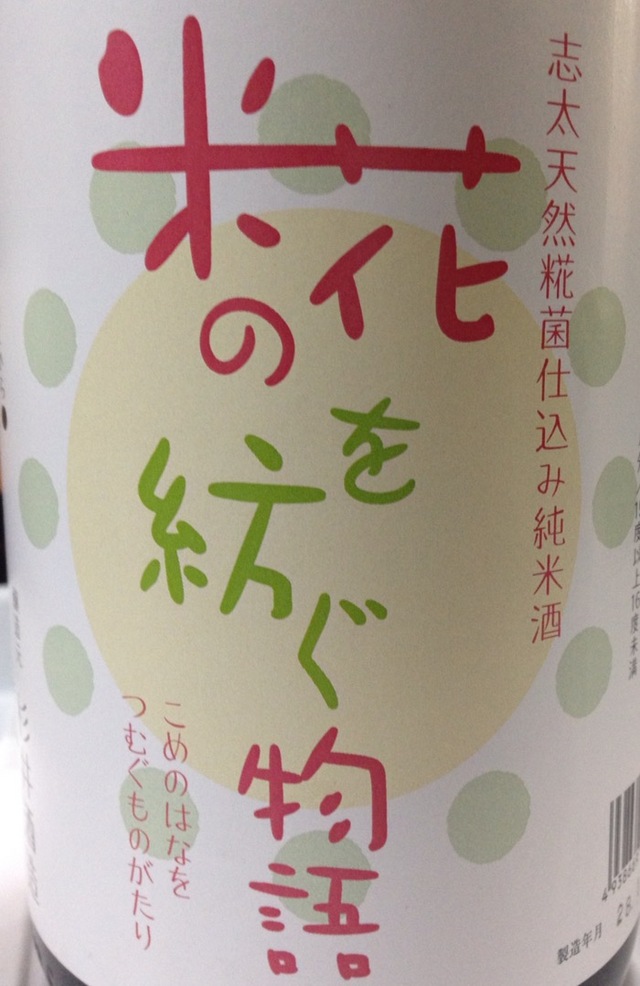 志太天然糀菌仕込み純米酒
米の花を
紡ぐ
物語
こめのはなを
つむぐものがたり
製造年月